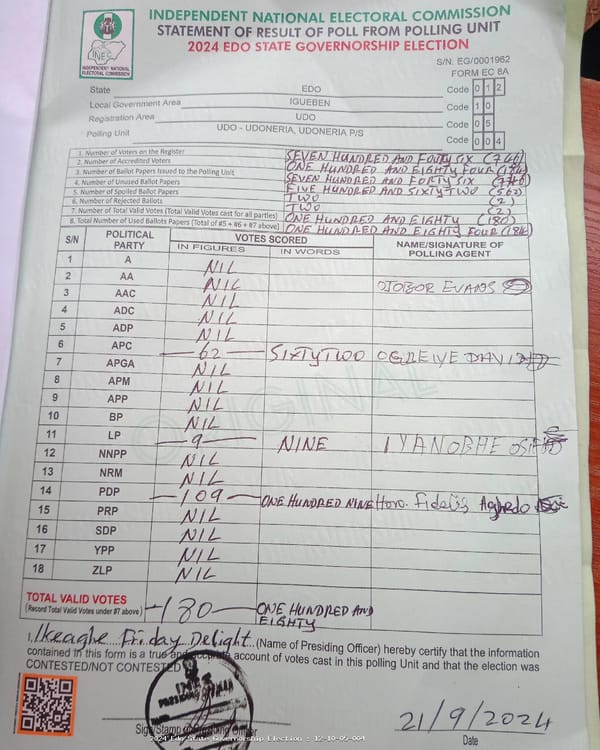 INDEPENDENT NATIONAL ELECTORAL COMMISSION
STATEMENT OF RESULT OF POLL FROM POLLING UNIT
2024 EDO STATE GOVERNORSHIP ELECTION
INEC
INDEPENDENT NATIONAL ELECTORAL COMMISSION
S/N: EG/0001962
FORM EC 8A
State EDO Code 0 1 2
Local Government Area IGUEBEN Code 1 0
Registration Area UDO Code 0 5
Polling Unit UDO - UDONERIA, UDONERIA P/S Code 0 0 4
1. Number of Voters on the Register SEVEN HUNDRED AND FOURTY SIX (746)
2. Number of Accredited Voters ONE HUNDRED AND EIGHTY FOUR (184)
3. Number of Ballot Papers Issued to the Polling Unit SEVEN HUNDRED AND FORTY SIX (746)
4. Number of Unused Ballot Papers FIVE HUNDRED AND SIXTY TWO (562)
5. Number of Spoiled Ballot Papers TWO (2)
6. Number of Rejected Ballots TWO (2)
7. Number of Total Valid Votes (Total Valid Votes cast for all parties) ONE HUNDRED AND EIGHTY (180)
8. Total Number of Used Ballots Papers (Total of #5 + #6 + #7 above) ONE HUNDRED AND EIGHTY FOUR (184)
S/N POLITICAL PARTY VOTES SCORED NAME/SIGNATURE OF POLLING AGENT
IN FIGURES IN WORDS
1 A NIL
2 AA NIL
3 AAC NIL OJOBOR EVANS
4 ADC NIL
5 ADP NIL
6 APC 62 SIXTYTWO OGBEIVE DAVID
7 APGA NIL
8 APM NIL
9 APP NIL
10 BP NIL
11 LP 9 NINE IYANOBHE
12 NNPP NIL
13 NRM NIL
14 PDP 109 ONE HUNDRED NINE Hon. Fidelis Aghedo
15 PRP NIL
16 SDP NIL
17 YPP NIL
18 ZLP NIL
ORIGINAL
TOTAL VALID VOTES
(Record Total Valid Votes under #7 above) 180 ONE HUNDRED AND EIGHTY
I, Ikeaghe Friday Delight (Name of Presiding Officer) hereby certify that the information
contained in this form is a true and accurate account of votes cast in this polling Unit and that the election was
CONTESTED/NOT CONTESTED
Sign/Stamp of Presiding Officer
21/9/2024
Date
2024 Edo State Governorship Election : 12-10-05-004